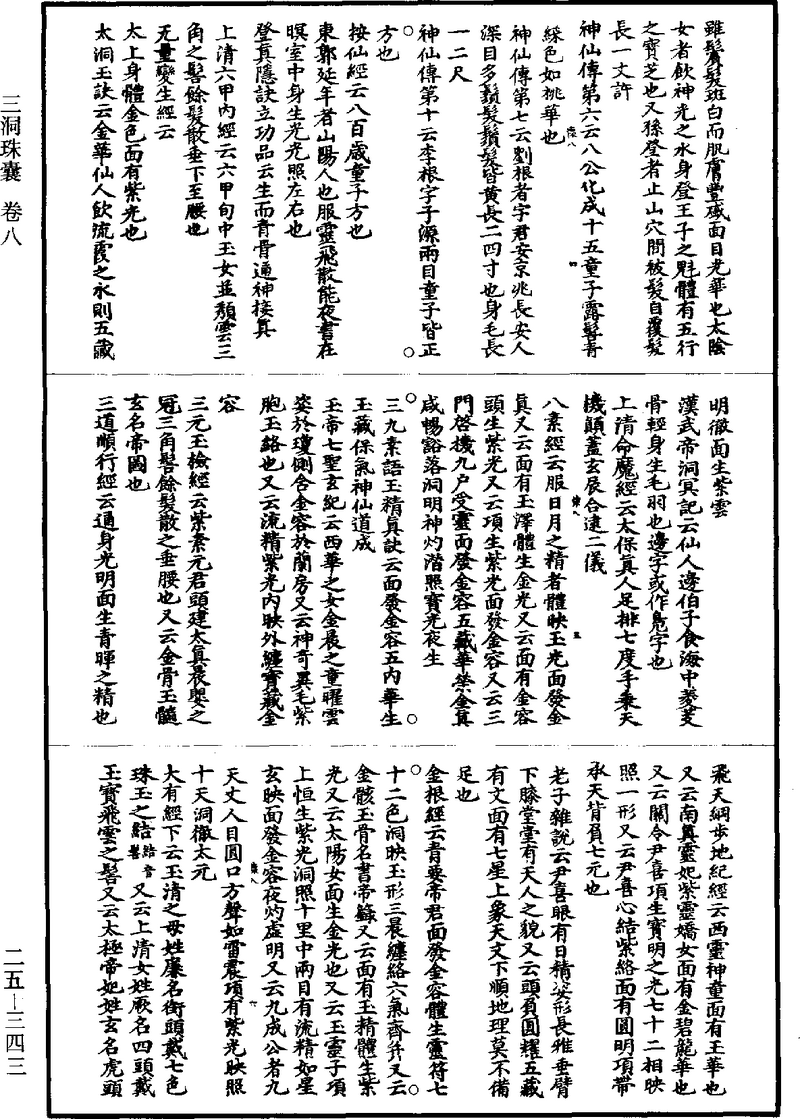 三洞珠囊 卷八
二五—三四三
雖鬢髮斑白而肌膚豐盛面目光華也太陰
女者飲神光之水身登王子之魁體有五行
之寶芝也又孫登者止山穴間被髮自覆髮
長一丈許
神仙傳第六云八公化成十五童子露髻青
綵色如桃華也
神仙傳第七云劉根者字君安京兆長安人
深目多鬚髮鬚髮皆黃長二四寸也身毛長
一二尺
神仙傳第十云李根字子源兩目童子皆正
方也
按仙經云八百歲童子方也
東郭延年者山陽人也服靈飛散能夜書在
暝室中身生光光照左右也
登真隱訣立功品云生而青骨通神接真
上清六甲內經云六甲旬中玉女並頹雲三
角之髻餘髮散垂下至腰也
无量變生經云
太上身體金色面有紫光也
太洞玉訣云金華仙人飲流霞之水則五藏
明徹面生紫雲
漢武帝洞冥記云仙人邊伯子食海中蔆芰
骨輕身生毛羽也邊字或作鳧字也
上清命魔經云太保真人足排七度手秉天
機顛蓋玄辰合遠二儀
八素經云服日月之精者體映玉光面發金
真又云面有玉澤體生金光又云面有金容
頭生紫光又云項生紫光面發金容又云三
門啓機九户受靈面發金容五藏華榮金真
咸暢豁落洞明神灼潛照寶光夜生
三九素語玉精真訣云面發金容五內華生
玉藏保氣神仙道成
玉帝七聖玄紀云西華之女金晨之童曜雲
姿於瓊側含金容於蘭房又云神奇異毛紫
胞玉絡也又云流精紫光內映外纏寶藏金
容
三元玉檢經云紫素元君頭建太真晨嬰之
冠三角髻餘髮散之垂腰也又云金骨玉髓
玄名帝圖也
三道順行經云通身光明面生青暉之精也
飛天綱步地紀經云西靈神童面有玉華也
又云南真靈妃紫靈嬌女面有金碧龍華也
又云關令尹喜項生寶明之光七十二相映
照一形又云尹喜心結紫絡面有圓明項帶
承天背負七元也
老子雜說云尹喜眼有日精姿形長雅垂臂
下膝堂堂有天人之貌又云頭負圓耀五藏
有文面有七星上象天文下順地理莫不備
足也
金根經云青要帝君面發金容體生靈符七
十二色洞映玉形三晨纏絡六氣齊并又云
金骸玉骨名書帝籙又云面有玉精體生紫
光又云太陽女面生金光也又云玉靈子項
上恒生紫光洞照十里中兩目有流精如星
玄映面發金容夜灼虛明又云九成公者九
天丈人目圓口方聲如雷震項有紫光映照
十天洞徹太元
大有經下云玉清之母姓廉名衒頭戴七色
珠玉之結結音髻又云上清女姓厥名四頭戴
玉寶飛雲之髻又云太極帝妃姓玄名虎頭